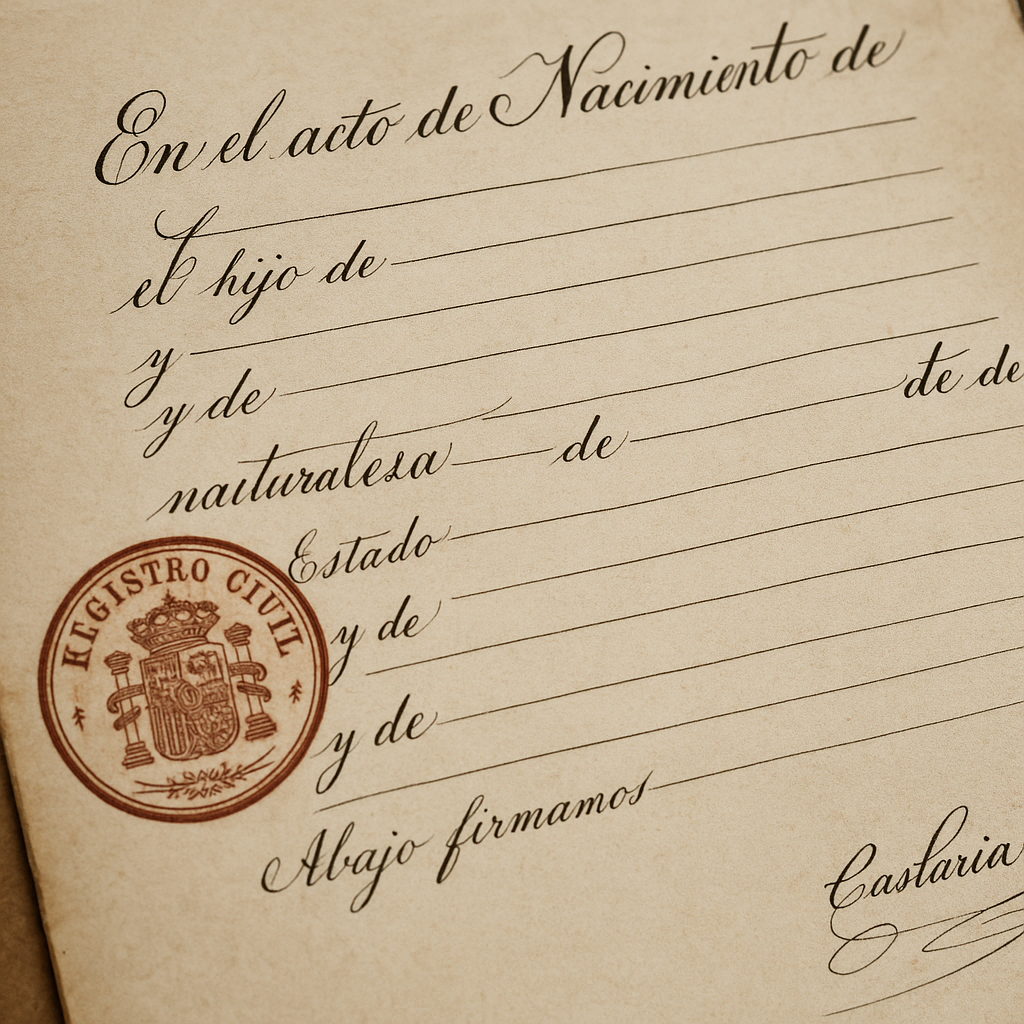 En el acto de Nacimiento de
el hijo de
y
y de
naituralesa de de de
Estado
REGISTRO CIUIL
y de
y de
Abajo firmamos
Caslaria